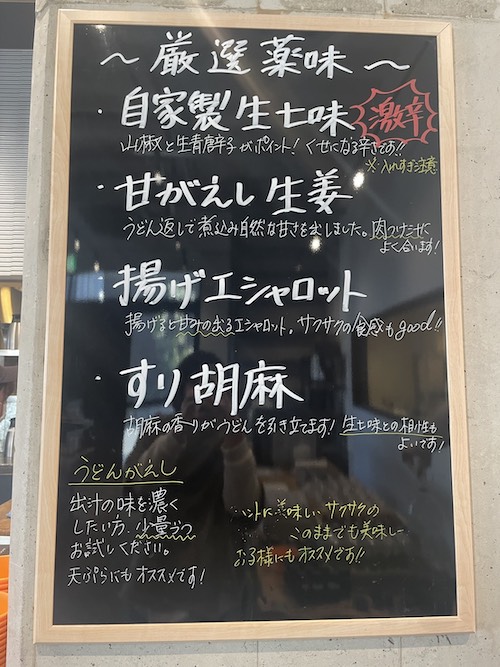 ～厳選薬味～
・自家製生七味 激辛
山椒と生青唐辛子がポイント！くせになる辛さです!!
※入れすぎ注意
・甘がえし生姜
うどん返しで煮込み自然な甘さを出しました。肉つけ汁に
よく合います！
・揚げエシャロット
揚げると甘みの出るエシャロット。サクサクの食感もgood!!
・すり胡麻
胡麻の香りがうどんを引き立てます！生七味との相性も
よいです！
うどんがえし
出汁の味を濃く
したい方、少量ずつ
お試しください。
天ぷらにもオススメです！
ントに美味しいサクサクの
このままでも美味しー
お子様にもオススメです!!